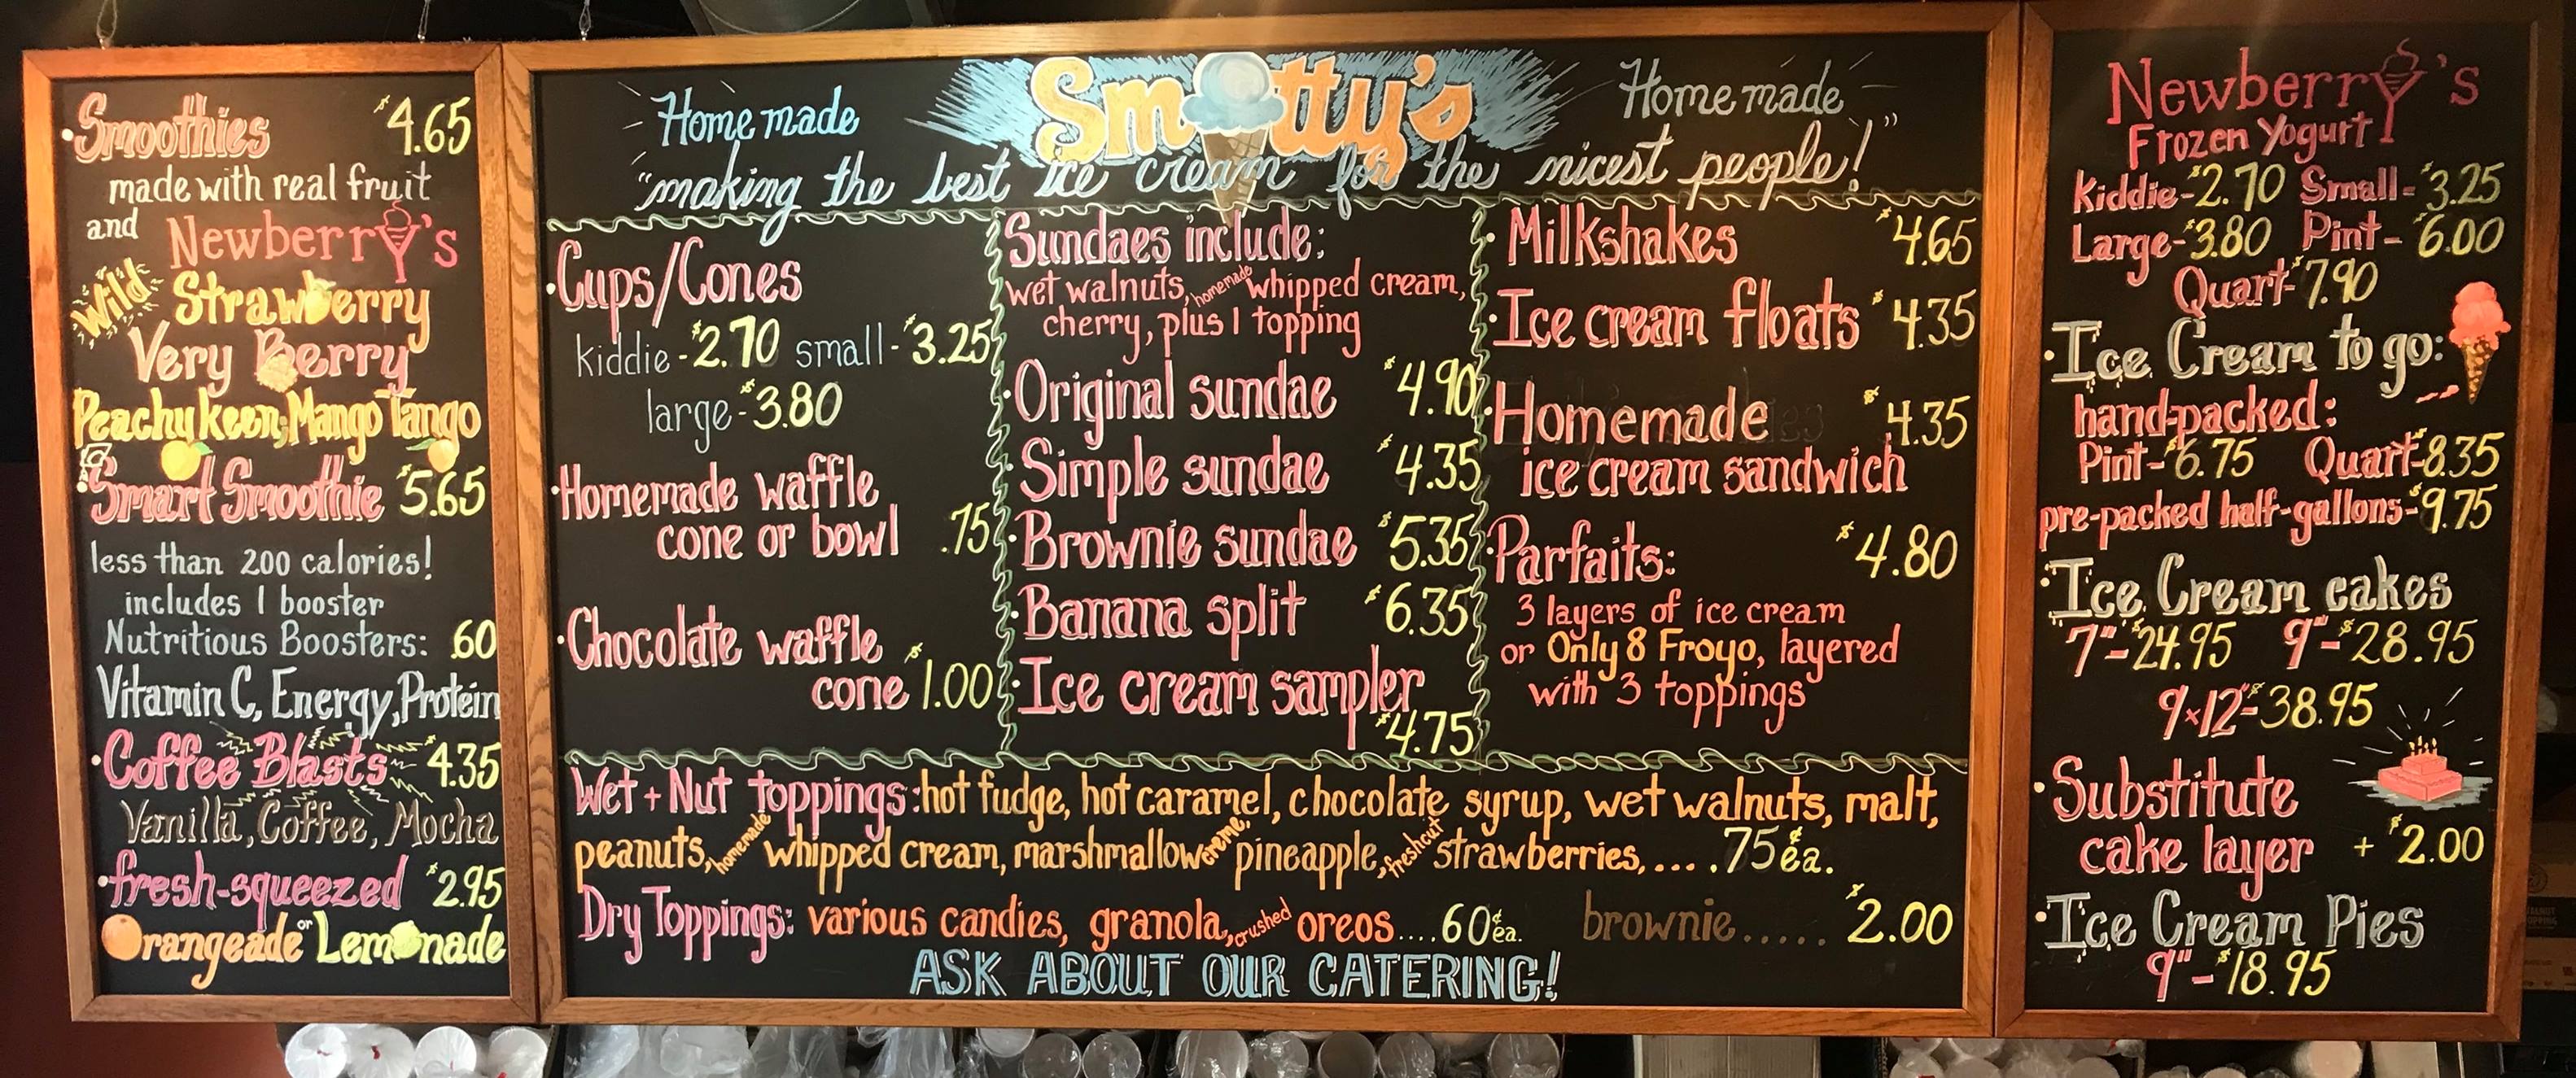 • Smoothies $4.65
made with real fruit
and Newberry's
Wild Strawberry
Very Berry
Peachy keen, Mango Tango
• Smart Smoothie $5.65
less than 200 calories!
includes 1 booster
Nutritious Boosters: .60
Vitamin C, Energy, Protein
• Coffee Blasts $4.35
Vanilla, Coffee, Mocha
• fresh-squeezed $2.95
Orangeade or Lemonade
Home made Smotty's Home made
"making the best ice cream for the nicest people!"
• Cups/Cones
kiddie - $2.70 small - $3.25
large - $3.80
• Homemade waffle
cone or bowl .75
• Chocolate waffle
cone $1.00
Sundaes include:
wet walnuts, homemade whipped cream,
cherry, plus 1 topping
• Original sundae $4.90
• Simple sundae $4.35
• Brownie sundae $5.35
• Banana split $6.35
• Ice cream sampler
$4.75
• Milkshakes $4.65
• Ice cream floats $4.35
• Homemade $4.35
ice cream sandwich
• Parfaits: $4.80
3 layers of ice cream
or Only 8 Froyo, layered
with 3 toppings
Wet + Nut toppings: hot fudge, hot caramel, chocolate syrup, wet walnuts, malt,
peanuts, homemade whipped cream, marshmallow creme, pineapple, fresh cut strawberries,.... .75¢ ea.
Dry Toppings: various candies, granola, crushed oreos.... 60¢ ea. brownie..... $2.00
ASK ABOUT OUR CATERING!
Newberry's
Frozen Yogurt
Kiddie - $2.70 Small - $3.25
Large - $3.80 Pint - $6.00
Quart - $7.90
• Ice Cream to go:
hand-packed:
Pint - $6.75 Quart - $8.35
pre-packed half-gallons - $9.75
• Ice Cream cakes
7" - $24.95 9" - $28.95
9x12" - $38.95
• Substitute
cake layer + $2.00
• Ice Cream Pies
9" - $18.95